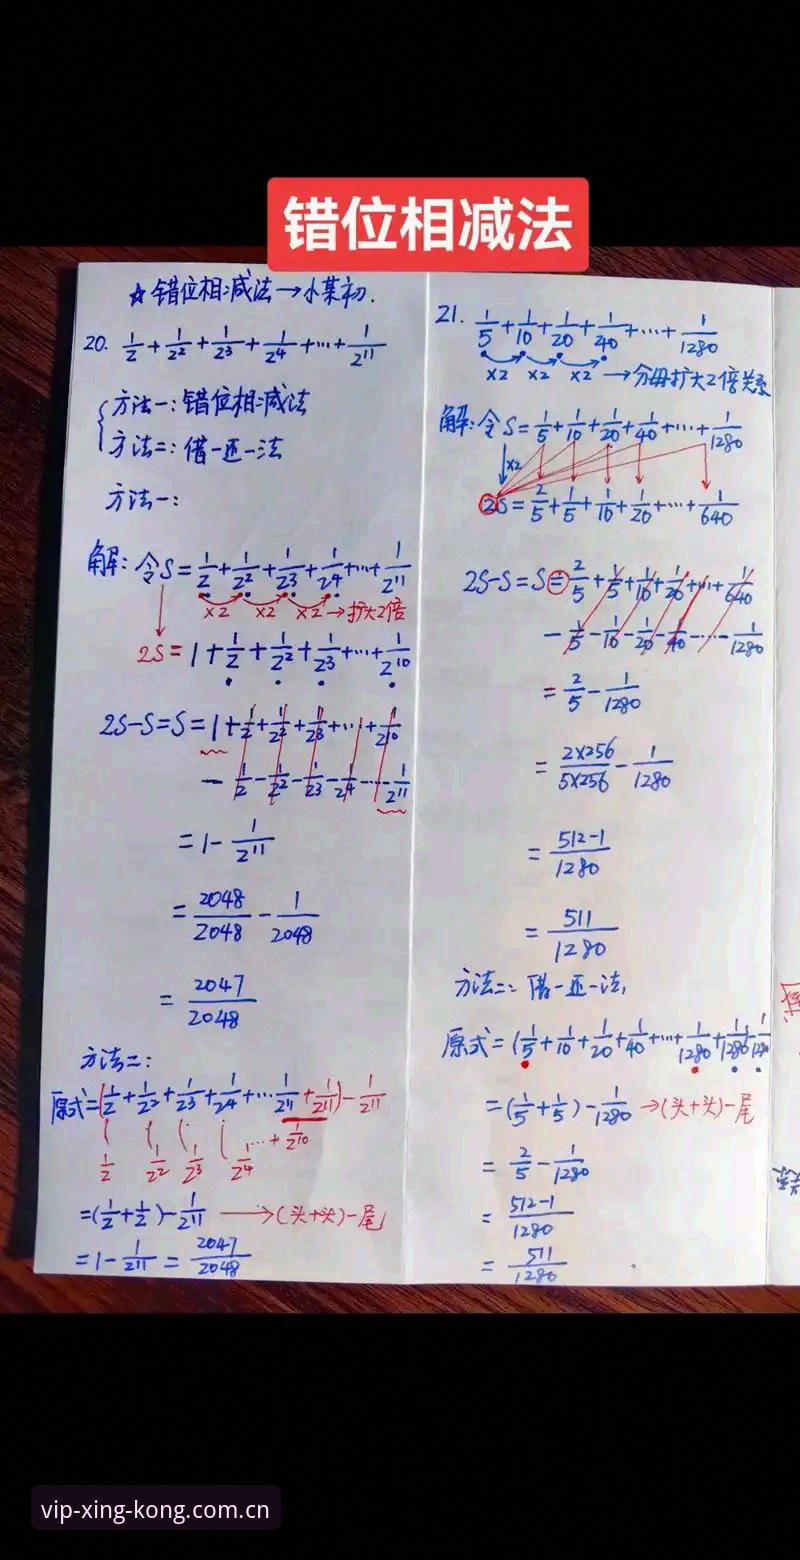 错位相减法
☆错位相减法→小某初.
20. 1/2 + 1/2² + 1/2³ + 1/2⁴ + … + 1/2¹¹
方法一:错位相减法
方法二:借一还一法
方法一:
解:令S = 1/2 + 1/2² + 1/2³ + 1/2⁴ + … + 1/2¹¹
×2 ×2 ×2 → 扩大2倍
2S = 1 + 1/2 + 1/2² + 1/2³ + … + 1/2¹⁰
2S-S=S= 1 + 1/2 + 1/2² + 1/2³ + … + 1/2¹⁰
- 1/2 - 1/2² - 1/2³ - 1/2⁴ … - 1/2¹¹
= 1 - 1/2¹¹
= 2048/2048 - 1/2048
= 2047/2048
方法二:
原式=(1/2 + 1/2² + 1/2³ + 1/2⁴ + … 1/2¹¹ + 1/2¹¹) - 1/2¹¹
1/2 1/2² 1/2³ 1/2⁴ … + 1/2¹⁰
=(1/2 + 1/2) - 1/2¹¹ → (头+头)-尾
= 1 - 1/2¹¹ = 2047/2048
21. 1/5 + 1/10 + 1/20 + 1/40 + … + 1/1280
×2 ×2 ×2 → 分母扩大2倍关系
解:令S = 1/5 + 1/10 + 1/20 + 1/40 + … + 1/1280
×2
2S = 2/5 + 1/5 + 1/10 + 1/20 + … + 1/640
2S-S=S= 2/5 + 1/5 + 1/10 + 1/20 + … + 1/640
- 1/5 - 1/10 - 1/20 - 1/40 - … - 1/1280
= 2/5 - 1/1280
= 2×256/5×256 - 1/1280
= 512-1/1280
= 511/1280
方法二:借一还一法,
原式=(1/5 + 1/10 + 1/20 + 1/40 + … + 1/1280 + 1/1280 - 1/1280
=(1/5 + 1/5) - 1/1280 → (头+头)-尾
= 2/5 - 1/1280
= 512-1/1280
= 511/1280
vip-xing-kong.com.cn